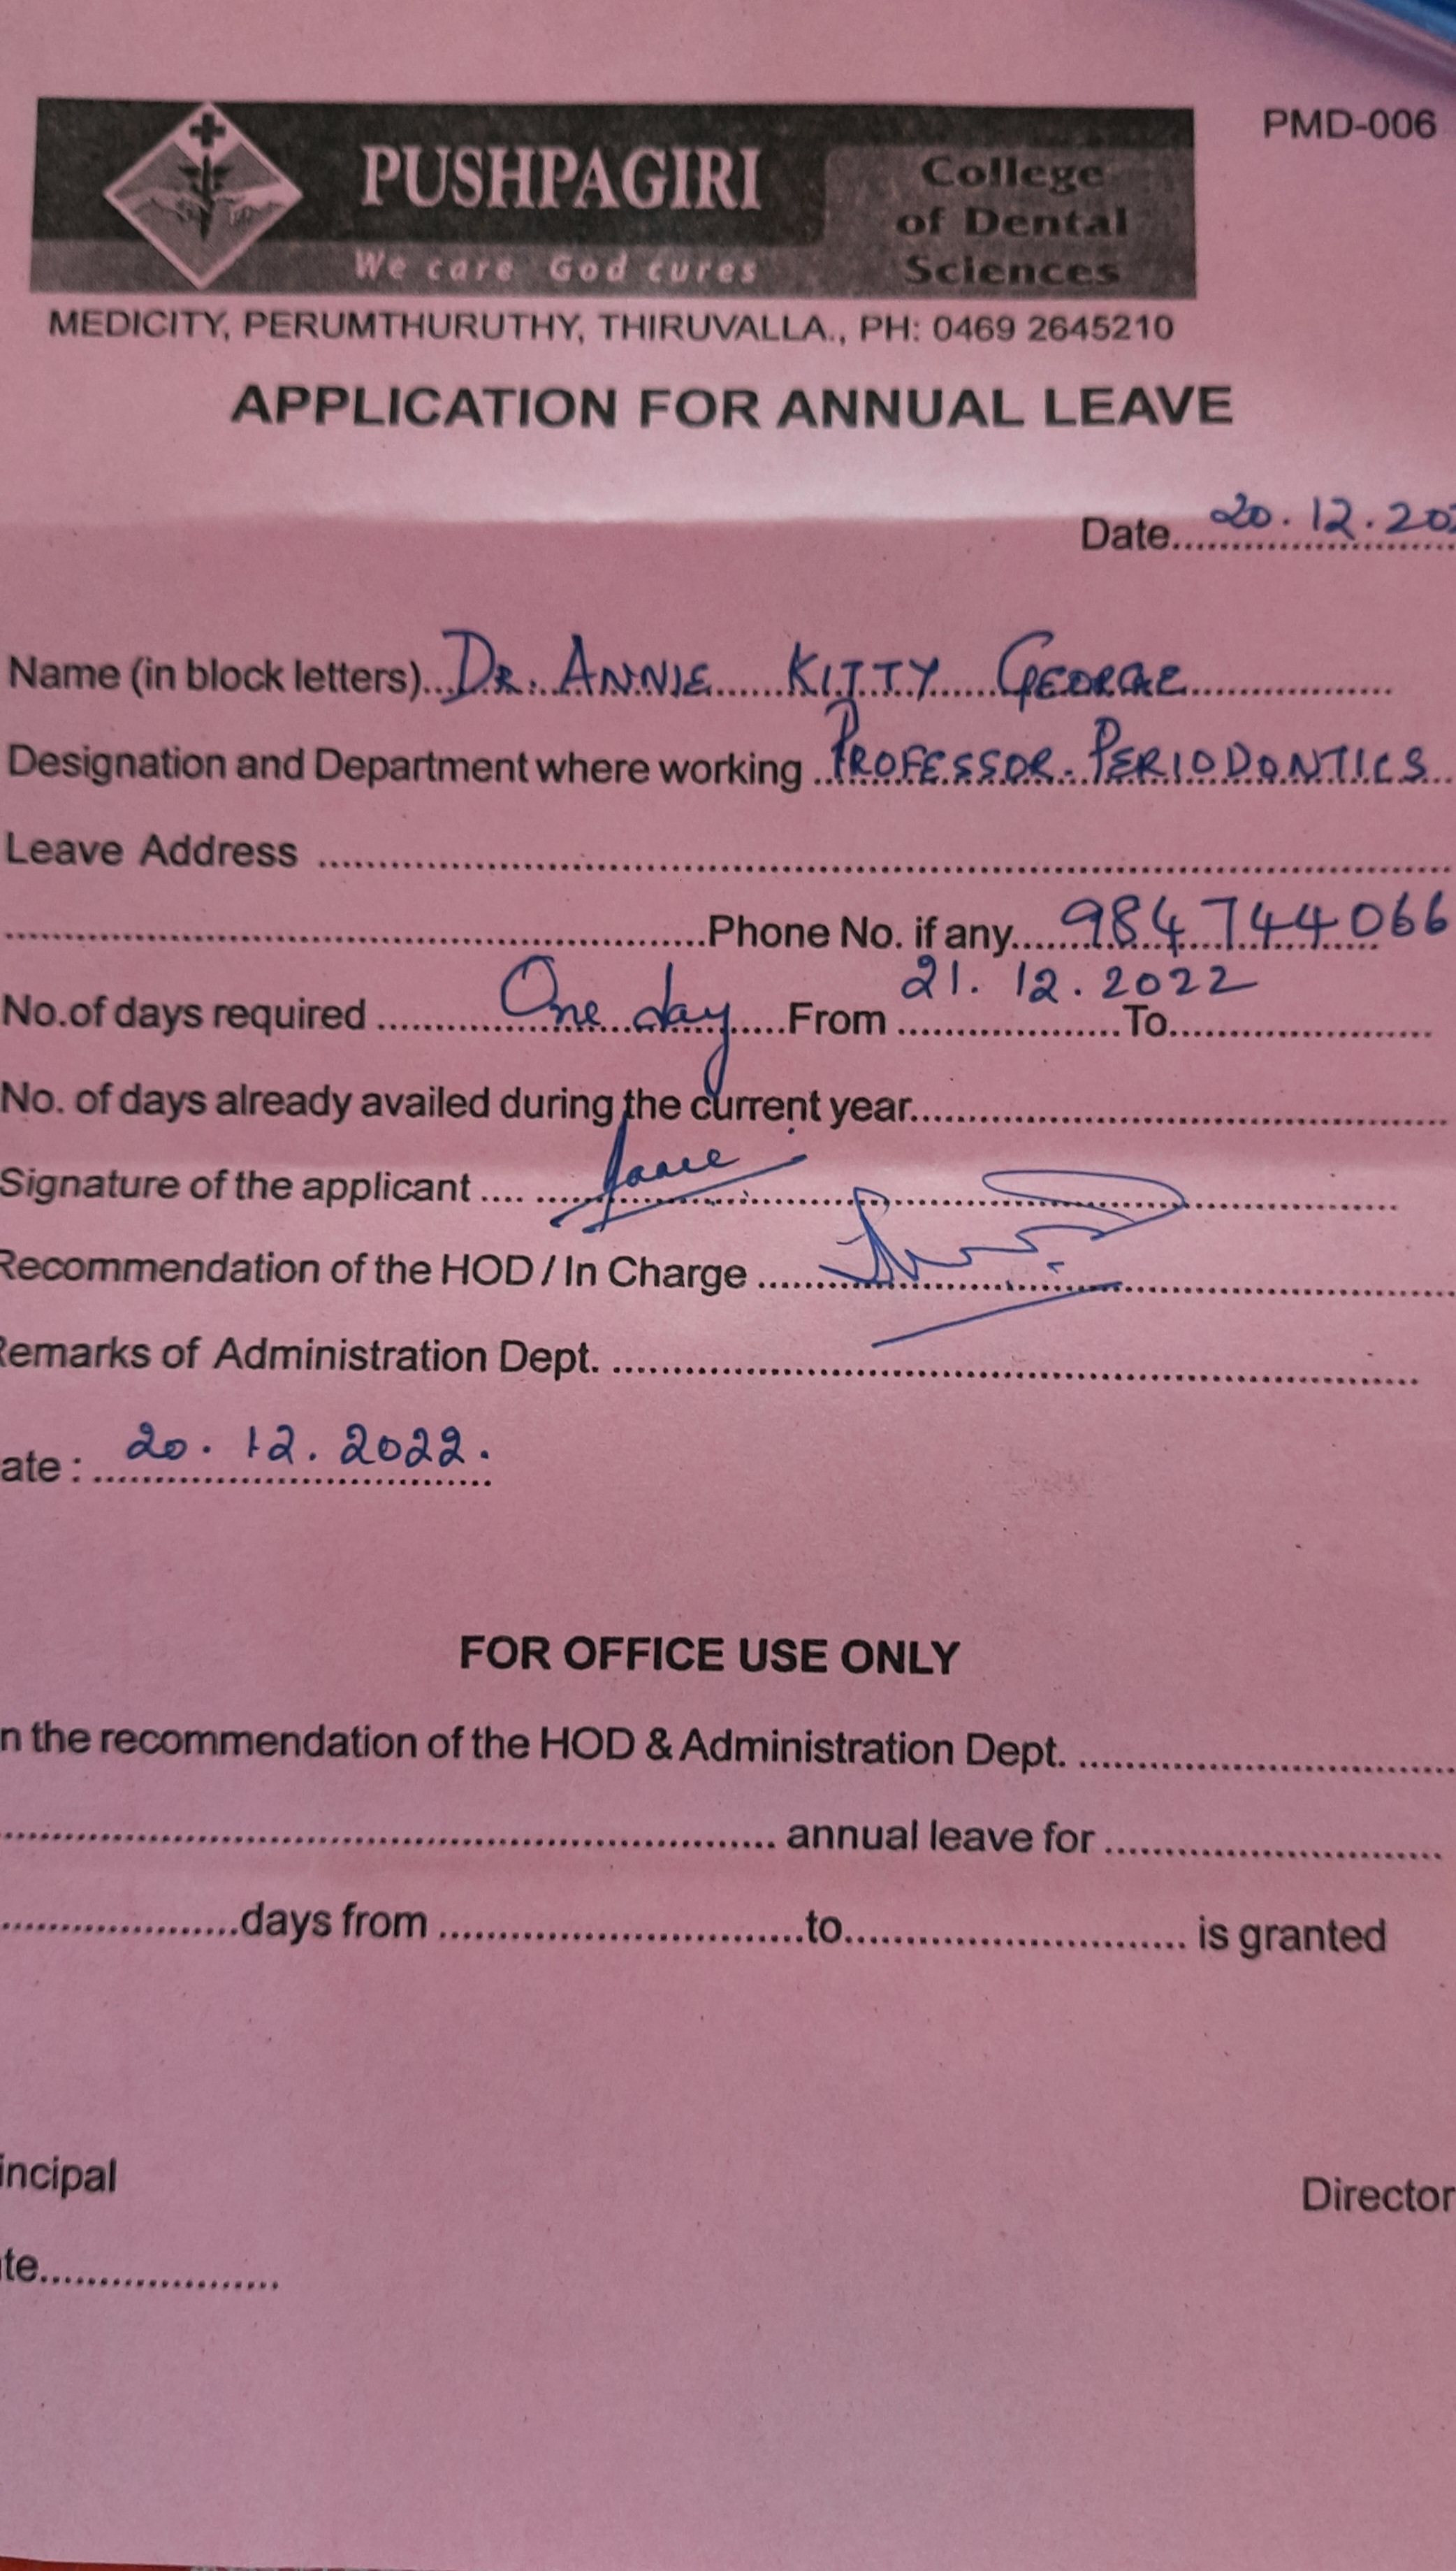 PMD-006
PUSHPAGIRI
We care God cures
College
of Dental
Sciences
MEDICITY, PERUMTHURUTHY, THIRUVALLA., PH: 0469 2645210
APPLICATION FOR ANNUAL LEAVE
Date 20.12.20
Name (in block letters) DR. ANNIE KITTY GEORGE
Designation and Department where working PROFESSOR. PERIODONTICS
Leave Address
Phone No. if any 984744066
No.of days required One day From 21.12.2022 To
No. of days already availed during the current year
Signature of the applicant
Recommendation of the HOD / In Charge
Remarks of Administration Dept.
ate : 20.12.2022.
FOR OFFICE USE ONLY
n the recommendation of the HOD & Administration Dept.
annual leave for
days from to is granted
incipal Director
te